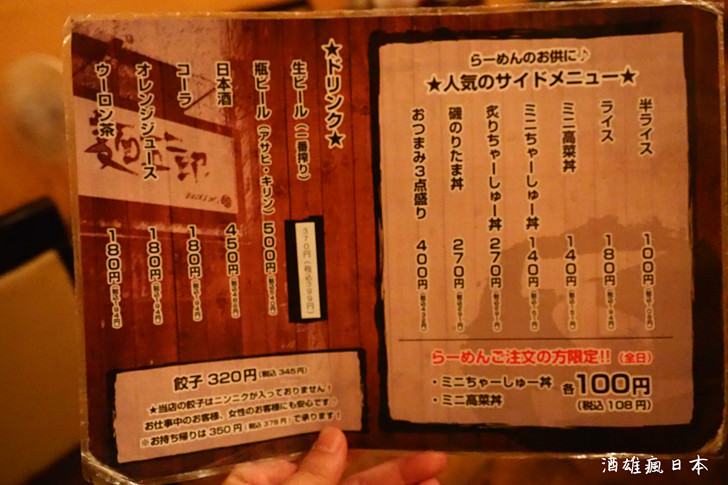 らーめんのお供に♪
★人気のサイドメニュー★
半ライス 100円(税込108円)
ライス 180円(税込194円)
ミニ高菜丼 140円(税込151円)
ミニちゃーしゅー丼 140円(税込151円)
炙りちゃーしゅー丼 270円(税込291円)
磯のりたま丼 270円(税込291円)
おつまみ3点盛り 400円(税込432円)
らーめんご注文の方限定!!(全日)
・ミニちゃーしゅー丼
・ミニ高菜丼
各100円
(税込108円)
★ドリンク★
生ビール(一番搾り) 370円(税込399円)
瓶ビール(アサヒ・キリン) 500円
日本酒 450円(税込486円)
コーラ 180円(税込194円)
オレンジジュース 180円(税込194円)
ウーロン茶 180円(税込194円)
餃子 320円(税込 345円)
★当店の餃子はニンニクが入っておりません!
お仕事中のお客様、女性のお客様にも安心です♪
※お持ち帰りは 350円(税込 378円)で承ります!
酒雄瘋日本